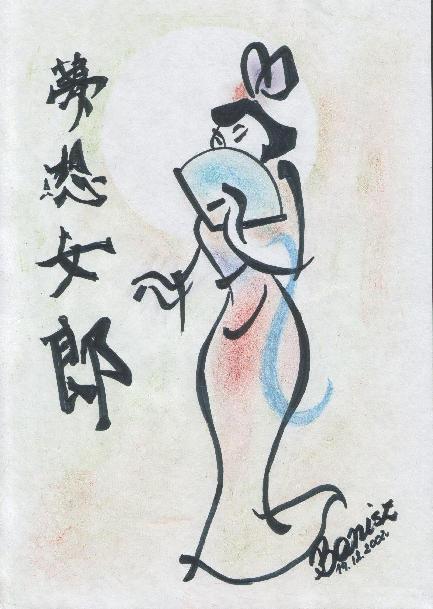 夢想女郎
Bonist
19.12.2002.